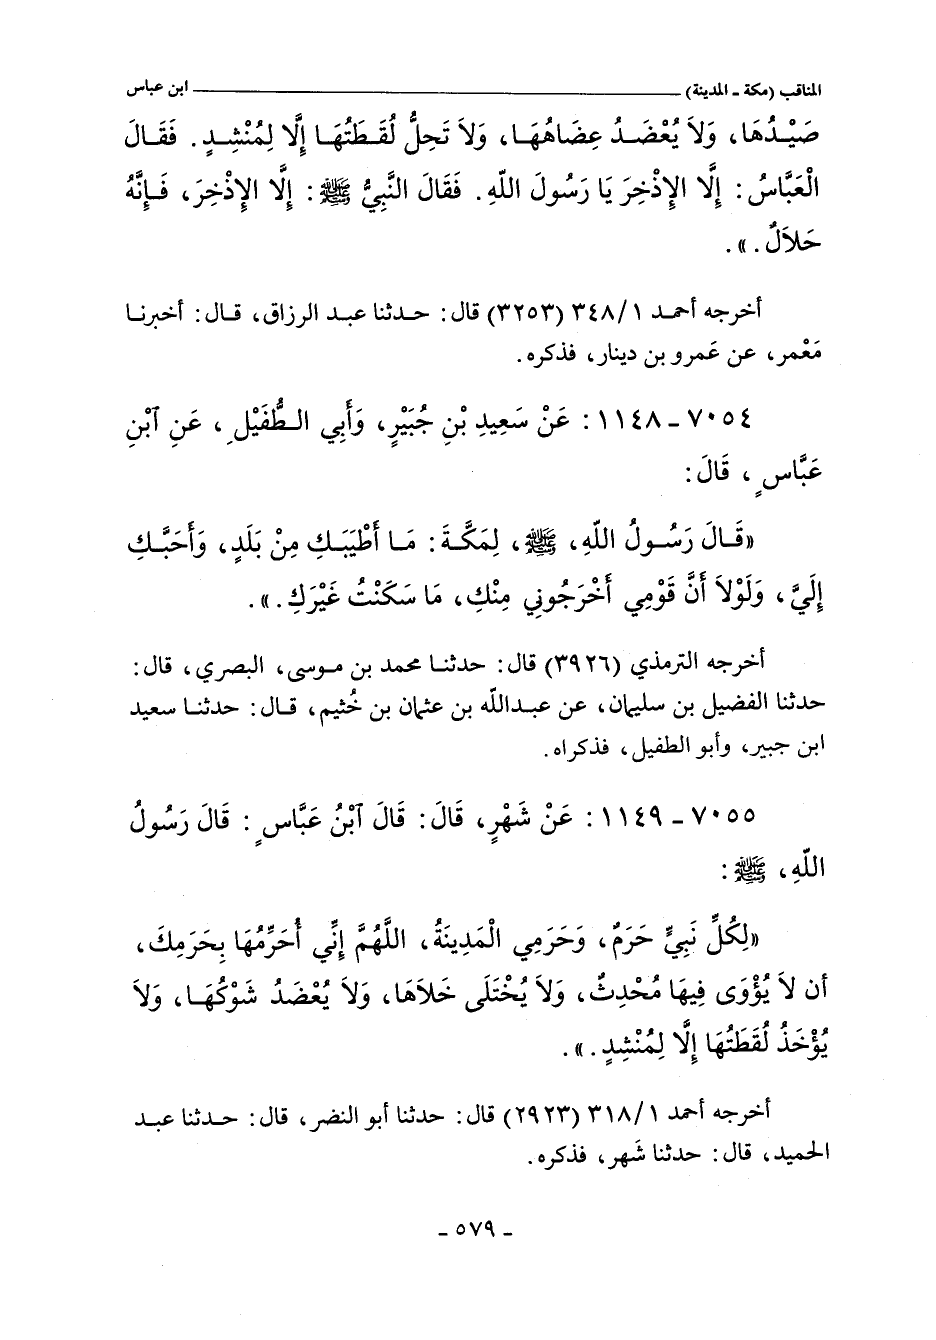 المناقب (مكة - المدينة) ـــــــــــــــــــــــــ ابن عباس
صَيْدُهَا، وَلاَ يُعْضَدُ عِضَاهُهَا، وَلاَ تَحِلُّ لُقَطَتُهَا إِلَّا لِمُنْشِدٍ. فَقَالَ
الْعَبَّاسُ: إِلَّا الإِذْخِرَ يَا رَسُولَ اللّهِ. فَقَالَ النَّبِيُّ ﷺ: إِلَّا الإِذْخِرَ، فَإِنَّهُ
حَلاَلٌ.».
أخرجه أحمد ١/ ٣٤٨ (٣٢٥٣) قال: حدثنا عبد الرزاق، قال: أخبرنا
مَعْمر، عن عَمرو بن دينار، فذكره.
٧٠٥٤ - ١١٤٨: عَنْ سَعِيدِ بْنِ جُبَيْرٍ، وَأَبِي الطُّفَيْلِ، عَنِ ٱبْنِ
عَبَّاسٍ، قَالَ:
«قَالَ رَسُولُ اللّهِ، ﷺ، لِمَكَّةَ: مَا أَطْيَبَكِ مِنْ بَلَدٍ، وَأَحَبَّكِ
إِلَيَّ، وَلَوْلاَ أَنَّ قَوْمِي أَخْرَجُونِي مِنْكِ، مَا سَكَنْتُ غَيْرَكِ.».
أخرجه الترمذي (٣٩٢٦) قال: حدثنا محمد بن موسى، البصري، قال:
حدثنا الفضيل بن سليمان، عن عبدالله بن عثمان بن خُثيم، قال: حدثنا سعيد
ابن جبير، وأبو الطفيل، فذكراه.
٧٠٥٥ - ١١٤٩: عَنْ شَهْرٍ، قَالَ: قَالَ ٱبْنُ عَبَّاسٍ: قَالَ رَسُولُ
اللّهِ، ﷺ:
«لِكُلِّ نَبِيٍّ حَرَمٌ، وَحَرَمِي الْمَدِينَةُ، اللَّهُمَّ إِنِّي أُحَرِّمُهَا بِحَرَمِكَ،
أن لاَ يُؤْوَى فِيهَا مُحْدِثٌ، وَلاَ يُخْتَلَى خَلاَهَا، وَلاَ يُعْضَدُ شَوْكُهَا، وَلاَ
يُؤْخَذُ لُقَطَتُهَا إِلَّا لِمُنْشِدٍ.».
أخرجه أحمد ١/ ٣١٨ (٢٩٢٣) قال: حدثنا أبو النضر، قال: حدثنا عبد
الحميد، قال: حدثنا شَهر، فذكره.
- ٥٧٩ -